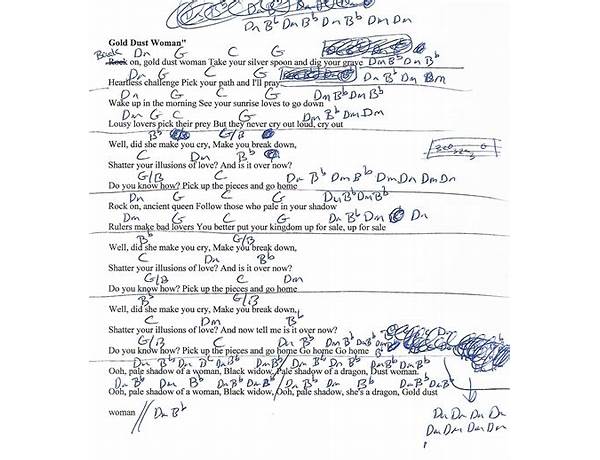 Dm Bb Dm Bb Dm Bb Dm Dm
Gold Dust Woman"
Dm G C G
Rock on, gold dust woman Take your silver spoon and dig your grave Dm Bb Dm Bb
Dm G C G Dm Bb Dm
Heartless challenge Pick your path and I'll pray
Dm G C G Dm Bb Dm Bb
Wake up in the morning See your sunrise loves to go down
Dm G C G Dm Bb Dm Dm
Lousy lovers pick their prey But they never cry out loud, cry out
Bb G/B
Well, did she make you cry, Make you break down,
C Dm Bb
Shatter your illusions of love? And is it over now?
G/B C Dm Bb Dm Bb Dm Dm Dm Dm
Do you know how? Pick up the pieces and go home
Dm G C G Dm Bb Dm Bb
Rock on, ancient queen Follow those who pale in your shadow
Dm G C G Dm Bb Dm Dm
Rulers make bad lovers You better put your kingdom up for sale, up for sale
Bb G/B
Well, did she make you cry, Make you break down,
C Dm Bb
Shatter your illusions of love? And is it over now?
G/B C Dm
Do you know how? Pick up the pieces and go home
Bb G/B
Well, did she make you cry, Make you break down,
C Dm Bb
Shatter your illusions of love? And now tell me is it over now?
G/B C Dm Bb Dm Bb Dm Bb Dm
Do you know how? Pick up the pieces and go home Go home Go home
Dm Bb Dm Bb Dm Bb Dm Bb
Ooh, pale shadow of a woman, Black widow, Pale shadow of a dragon, Dust woman
Dm Bb Dm Bb Dm Bb Dm Bb Dm Bb Dm Bb
Ooh, pale shadow of a woman, Black widow, Ooh, pale shadow, she's a dragon, Gold dust
woman // Dm Bb
Dm Dm Dm Dm
Dm Dm Dm Dm